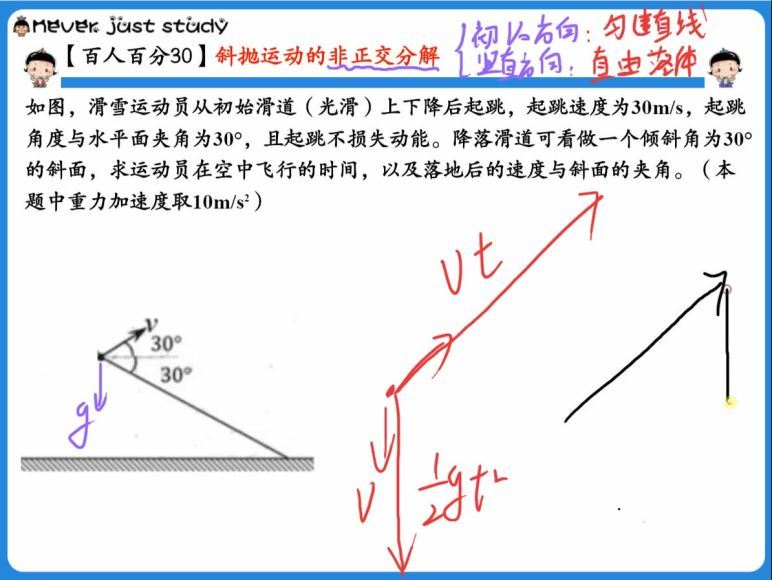 never just study
【百人百分30】斜抛运动的非正交分解
初V₀方向：匀速直线
竖直方向：自由落体
如图，滑雪运动员从初始滑道（光滑）上下降后起跳，起跳速度为30m/s，起跳
角度与水平面夹角为30°，且起跳不损失动能。降落滑道可看做一个倾斜角为30°
的斜面，求运动员在空中飞行的时间，以及落地后的速度与斜面的夹角。（本
题中重力加速度取10m/s²）
v
30°
30°
g
vt
v
½gt²